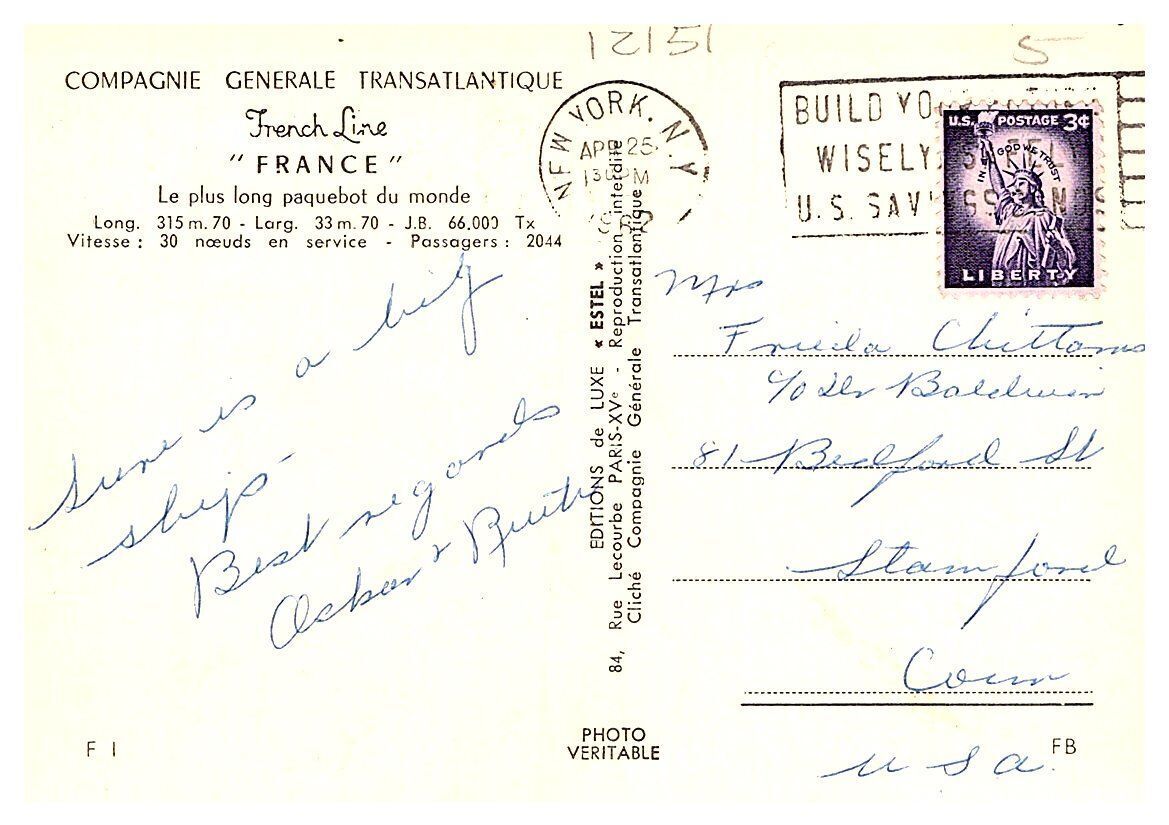 12151
5
COMPAGNIE GENERALE TRANSATLANTIQUE
French Line
"FRANCE"
Le plus long paquebot du monde
Long. 315 m. 70 - Larg. 33 m. 70 - J.B. 66.000 Tx
Vitesse : 30 nœuds en service - Passagers : 2044
Sure is a big
ship -
Best regards
Oskar & Ruth
F I
EDITIONS de LUXE « ESTEL »
84, Rue Lecourbe PARIS-XVe - Reproduction interdite
Cliché Compagnie Générale Transatlantique
PHOTO
VERITABLE
NEW YORK, N.Y
APR 25
PM
BUILD
WISELY
U.S. SAV
U.S. POSTAGE 3¢
IN GOD WE TRUST
LIBERTY
Mrs
Frieda Chittams
c/o Dr Baldwin
81 Bedford St
Stamford
Conn
USA.
FB